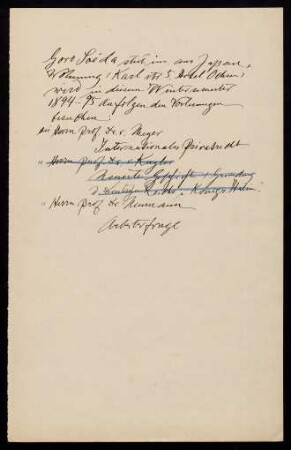 Goro Soéda stud. jur. aus Japan,
Wohnung: Karl str 5. Hotel
wird in diesem Wintersemester
1894-95 an folgenden Vorlesungen
besuchen:
an Herrn Prof. Dr. v. Meyer
Internationales Privatrecht
" Herrn Prof Dr. v Kugler
Neueste Geschichte u Gründung
d. deutschen
" Herrn Prof Dr Neumann
Arbeiterfrage